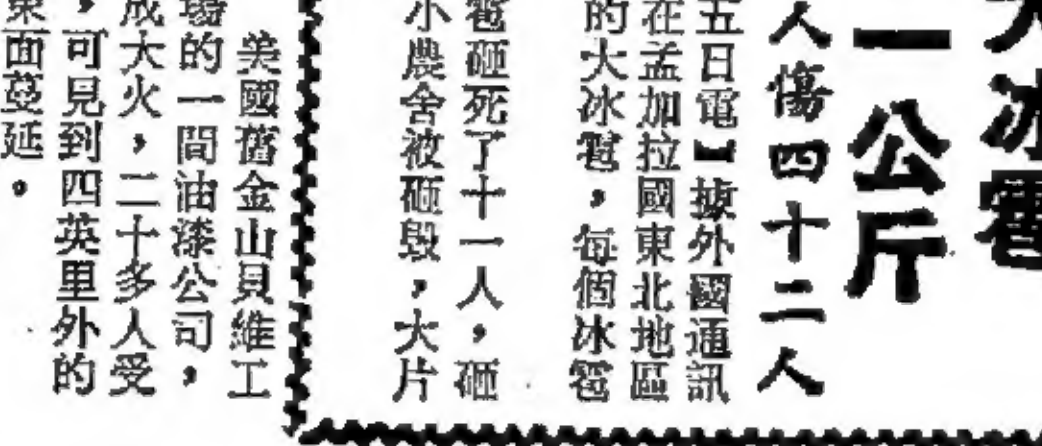 大冰雹
一公斤
人傷四十二人
五日電】據外國通訊
在孟加拉國東北地區
的大冰雹，每個冰雹
雹砸死了十一人，砸
小農舍被砸毀，大片
美國舊金山貝維工
場的一間油漆公司，
成大火，二十多人受
，可見到四英里外的
東面蔓延。